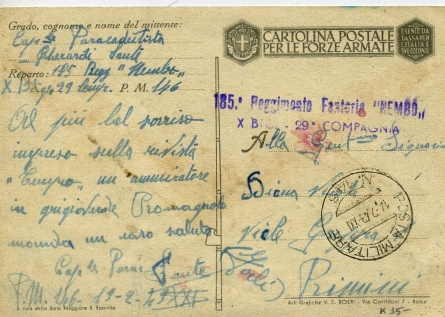 Grado, cognome e nome del mittente:
Cap.le Paracadutista
Santi
Reparto: 185 Regg "Nembo"
X Btg 29 Comp. P. M. 146
Al più bel sorriso
impreso sulla rivista
"Tempo", un ammiratore
in grigioverde Romagnolo
manda un caro saluto
Cap.le Parac.
Sante
P.M. 146 - 19-2-43 XXI
A cura dello Stato Maggiore R. Esercito
CARTOLINA POSTALE
PER LE FORZE ARMATE
ESENTE DA
TASSA PER
L'ITALIA E
LE COLONIE
185° Reggimento Fanteria "NEMBO"
X B 29ª COMPAGNIA
Alla Gent Signorina
Diana
Viale
(Forlì) Rimini
POSTA MILITARE
N. 146
Arti Grafiche V. E. BOERI - Via Corridoni 7 - Roma
K 35-